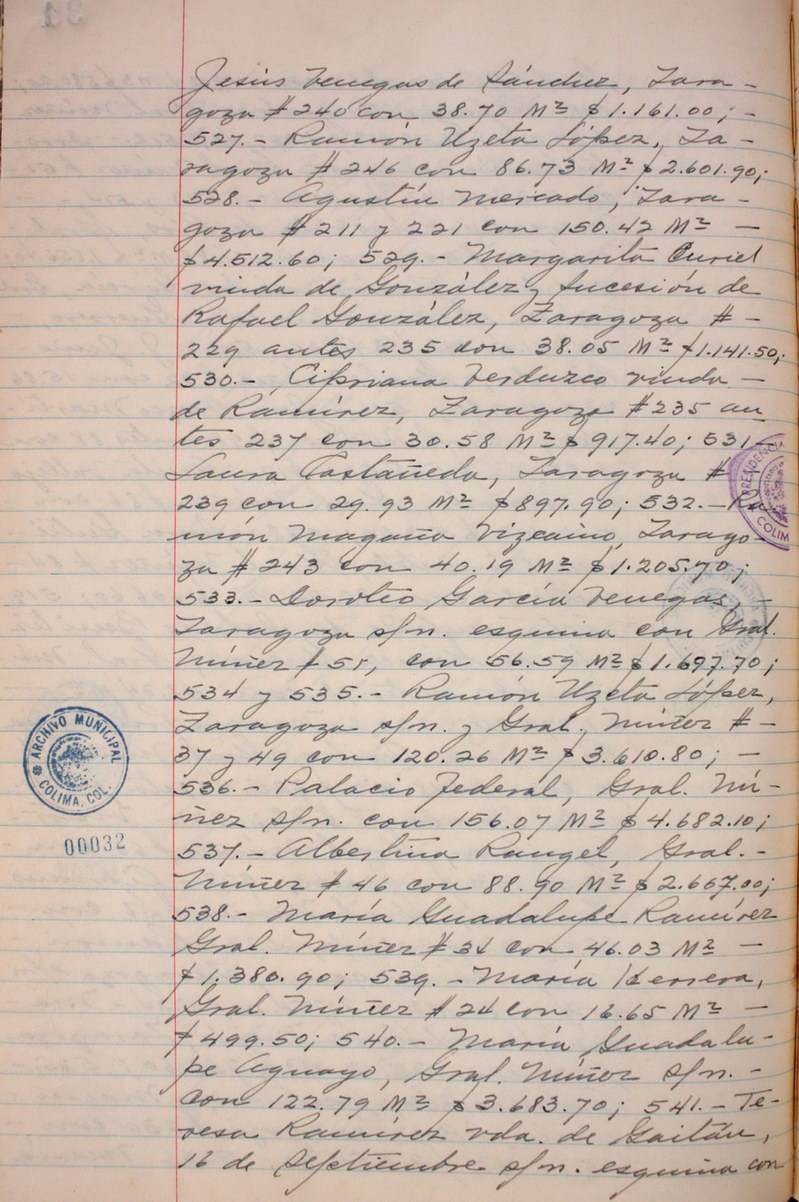 Jesús Venegas de Sánchez, Zara-
goza #240 con 38.70 M² $1.161.00; -
527.- Ramón Uzeta López, Za-
ragoza #246 con 86.73 M² $2.601.90;
528.- Agustín Mercado, Zara-
goza #211 y 221 con 150.42 M² -
$4.512.60; 529.- Margarita Curiel
viuda de González y sucesión de
Rafael González, Zaragoza # -
229 antes 235 con 38.05 M² $1.141.50;
530.- Cipriana Verduzco viuda -
de Ramírez, Zaragoza #235 an
tes 237 con 30.58 M² $917.40; 531.-
Laura Castañeda, Zaragoza #
239 con 29.93 M² $897.90; 532.- Ra
món Magaña Vizcaino, Zarago-
za #243 con 40.19 M² $1.205.70;
533.- Doroteo García Venegas, -
Zaragoza s/n. esquina con Gral.
Núñez #55, con 56.59 M² $1.697.70;
534 y 535.- Ramón Uzeta López,
Zaragoza s/n. y Gral. Núñez # -
37 y 49 con 120.26 M² $3.610.80; -
536.- Palacio Federal, Gral. Nú-
ñez s/n. con 156.07 M² $4.682.10;
537.- Albertina Rangel, Gral. -
Núñez #46 con 88.90 M² $2.667.00;
538.- María Guadalupe Ramírez
Gral. Núñez #34 con 46.03 M² -
$1,380.90; 539.- María Herrera,
Gral. Núñez #24 con 16.65 M² -
$499.50; 540.- María Guadalu-
pe Aguayo, Gral. Núñez s/n. -
con 122.79 M² $3.683.70; 541.- Te-
resa Ramírez vda. de Gaitán,
16 de Septiembre s/n. esquina con
ARCHIVO MUNICIPAL
COLIMA, COL.
00032
PRESIDENCIA
COLIMA